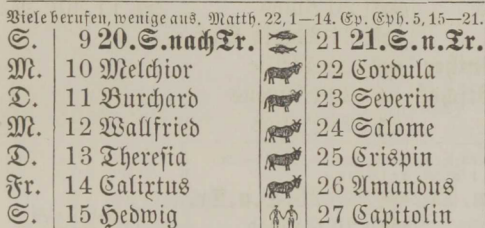 Viele berufen, wenige aus. Matth. 22, 1—14. Ep. Eph. 5, 15—21.
S. 9 20. S. nach Tr. 21 21. S. n. Tr.
M. 10 Melchior 22 Cordula
D. 11 Burchard 23 Severin
M. 12 Wallfried 24 Salome
D. 13 Theresia 25 Crispin
Fr. 14 Calixtus 26 Amandus
S. 15 Hedwig 27 Capitolin